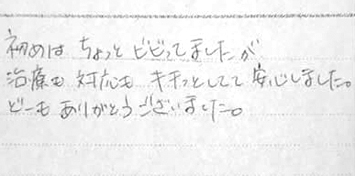 初めは ちょっと ビビッてましたが
治療も 対応も キチッとしてて 安心しました。
どーも ありがとうございました。